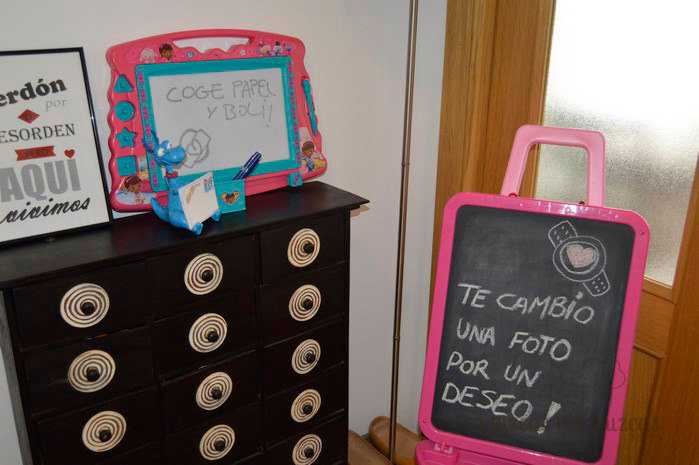 erdón
por
ESORDEN
AQUÍ
vivimos
COGE PAPEL
Y BOLI!
TE CAMBIO
UNA FOTO
POR UN
DESEO!